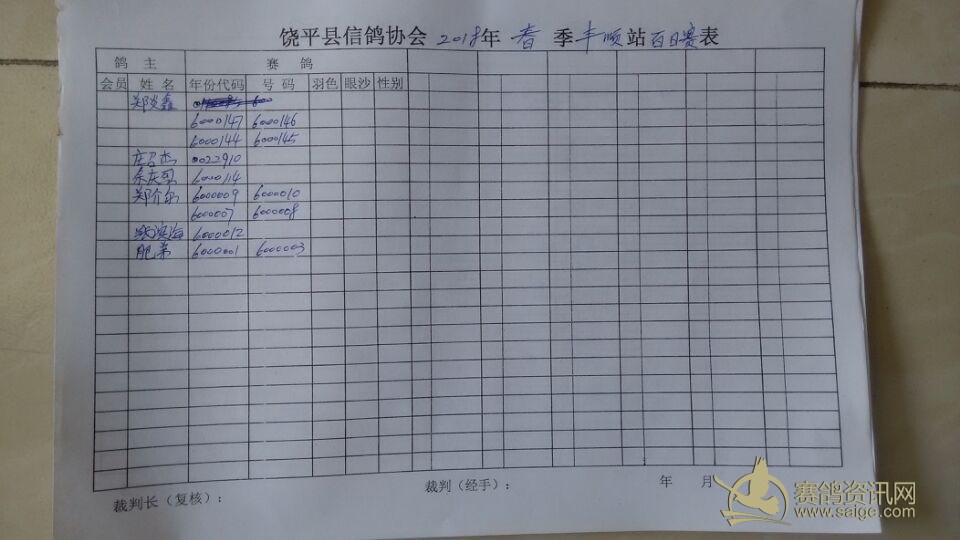 饶平县信鸽协会 2018年 春 季 丰顺 站 百日赛 表
鸽 主 赛 鸽
会员 姓 名 年份代码 号 码 羽色 眼沙 性别
郑炎鑫
6000147 6000146
6000144 6000145
庄 杰 0022910
余庆 6000114
郑介 6000009 6000010
600007 6000008
海 6000012
肥弟 6000001 6000003
裁判长（复核）： 裁判（经手）： 年 月
赛鸽资讯网
www.saige.com